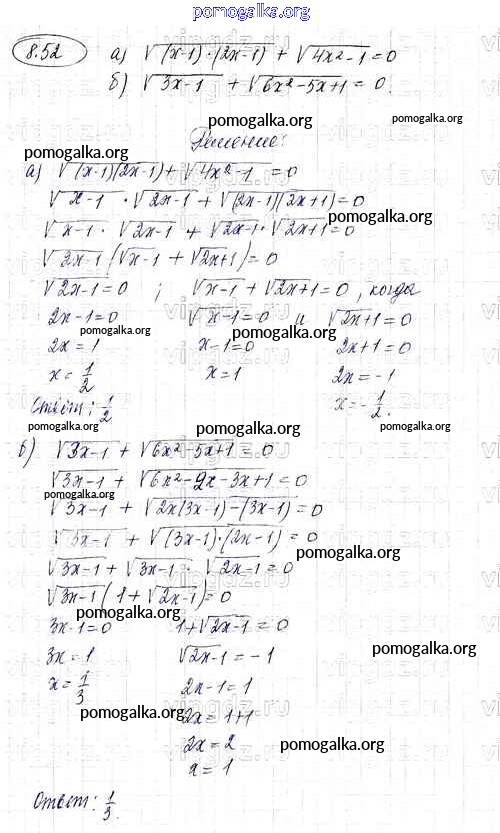 pomogalka.org
8.52 а) √(x-1)·(2x-1) + √4x²-1 = 0
б) √3x-1 + √6x²-5x+1 = 0.
pomogalka.org
Решение:
pomogalka.org
а) √(x-1)(2x-1) + √4x²-1 = 0
√x-1 · √2x-1 + √(2x-1)(2x+1) = 0
pomogalka.org
√x-1 · √2x-1 + √2x-1 · √2x+1 = 0
√2x-1 (√x-1 + √2x+1) = 0
√2x-1 = 0 ; √x-1 + √2x+1 = 0, когда
2x-1=0 √x-1=0 и √2x+1=0
pomogalka.org pomogalka.org
2x=1 x-1=0 2x+1=0
x=1/2 x=1 2x=-1
Ответ: 1/2 x=-1/2.
pomogalka.org pomogalka.org pomogalka.org
б) √3x-1 + √6x²-5x+1 = 0
√3x-1 + √6x²-2x-3x+1 = 0
pomogalka.org
√3x-1 + √2x(3x-1)-(3x-1) = 0
√3x-1 + √(3x-1)·(2x-1) = 0
pomogalka.org
√3x-1 + √3x-1 · √2x-1 = 0
√3x-1 (1+√2x-1) = 0
pomogalka.org
3x-1=0 1+√2x-1=0
pomogalka.org
3x=1 √2x-1=-1
x=1/3 2x-1=1
pomogalka.org
2x=1+1
2x=2
pomogalka.org
x=1
Ответ: 1/3.